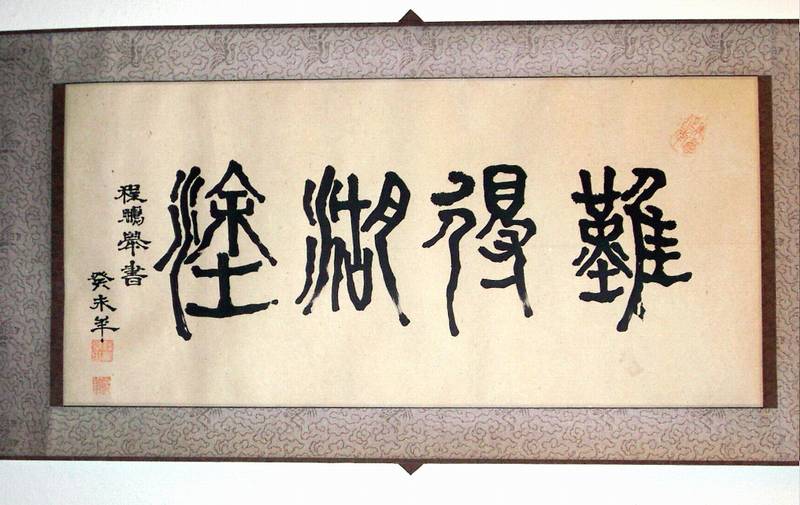 難得湖塗
程鵬舉書
癸未年